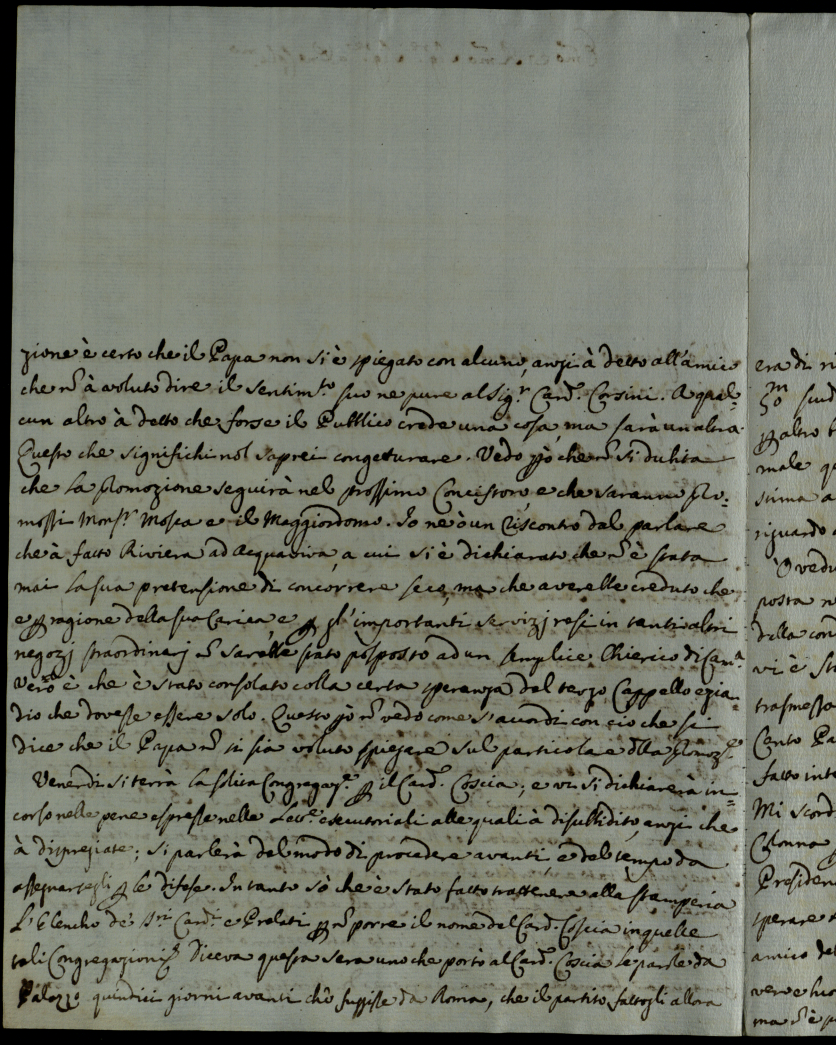 zione è certo che il Papa non si è spiegato con alcuno, anzi à detto all'amico
che nõ à voluto dire il sentim.to suo ne pure al Sig.r Card. Corsini. A qual=
cun altro à detto che forse il Pubblico crede una cosa, ma sarà un altra.
Questo che significhi nol saprei congetturare. Vedo però che nõ si dubita
che la promozione seguirà nel prossimo Concistoro e che saranno pro=
mossi Mons.r Mosca e il Maggiordomo. Io ne ò un riscontro dal parlare
che à fatto Riviera ad Acquaviva, a cui si è dichiarato che nõ è stata
mai la sua pretensione di concorrere seco, ma che averebbe creduto che
e ꝑ ragione della sua Carica e ꝑ gl'importanti servizj resi in tanti altri
negozj straordinarj nõ sarebbe stato posposto ad un semplice Chierico di Cam.a
Vero è che è stato consolato colla certa speranza del terzo Cappello ezian
dio che dovesse essere solo. Questo ꝑò nõ vedo come s'accordi con ciò che si
dice che il Papa nõ si sia voluto spiegare sul particolare dlla promoz.e
Venerdì si terrà la solita Congregaz.e ꝑ il Card. Coscia; e vi si dichiarerà in=
corso nelle pene espresse nelle Lett.e esecutoriali alle quali à disubbidito, anzi che
à dispregiate; si parlerà del modo di procedere avanti, e del tempo da
assegnarsegli ꝑ le difese. Intanto sò che è stato fatto trattenere alla stamperia
l'Elencho de' SS.ri Card.i e Prelati ꝑ nõ porre il nome del Card. Coscia in quelle
tali Congregazioni. Diceva questa sera uno che portò al Card. Coscia le parole da
Palazzo quindici giorni avanti che fuggisse da Roma, che il partito fattogli allora
era di
ꝑ altro
male
stima a
riguardo
O vedu
posta
della con
vi è
trasmessa
Canto Pa
fatto inte
Mi scord
Colonna
Presiden
sperare
amico del
vere
ma